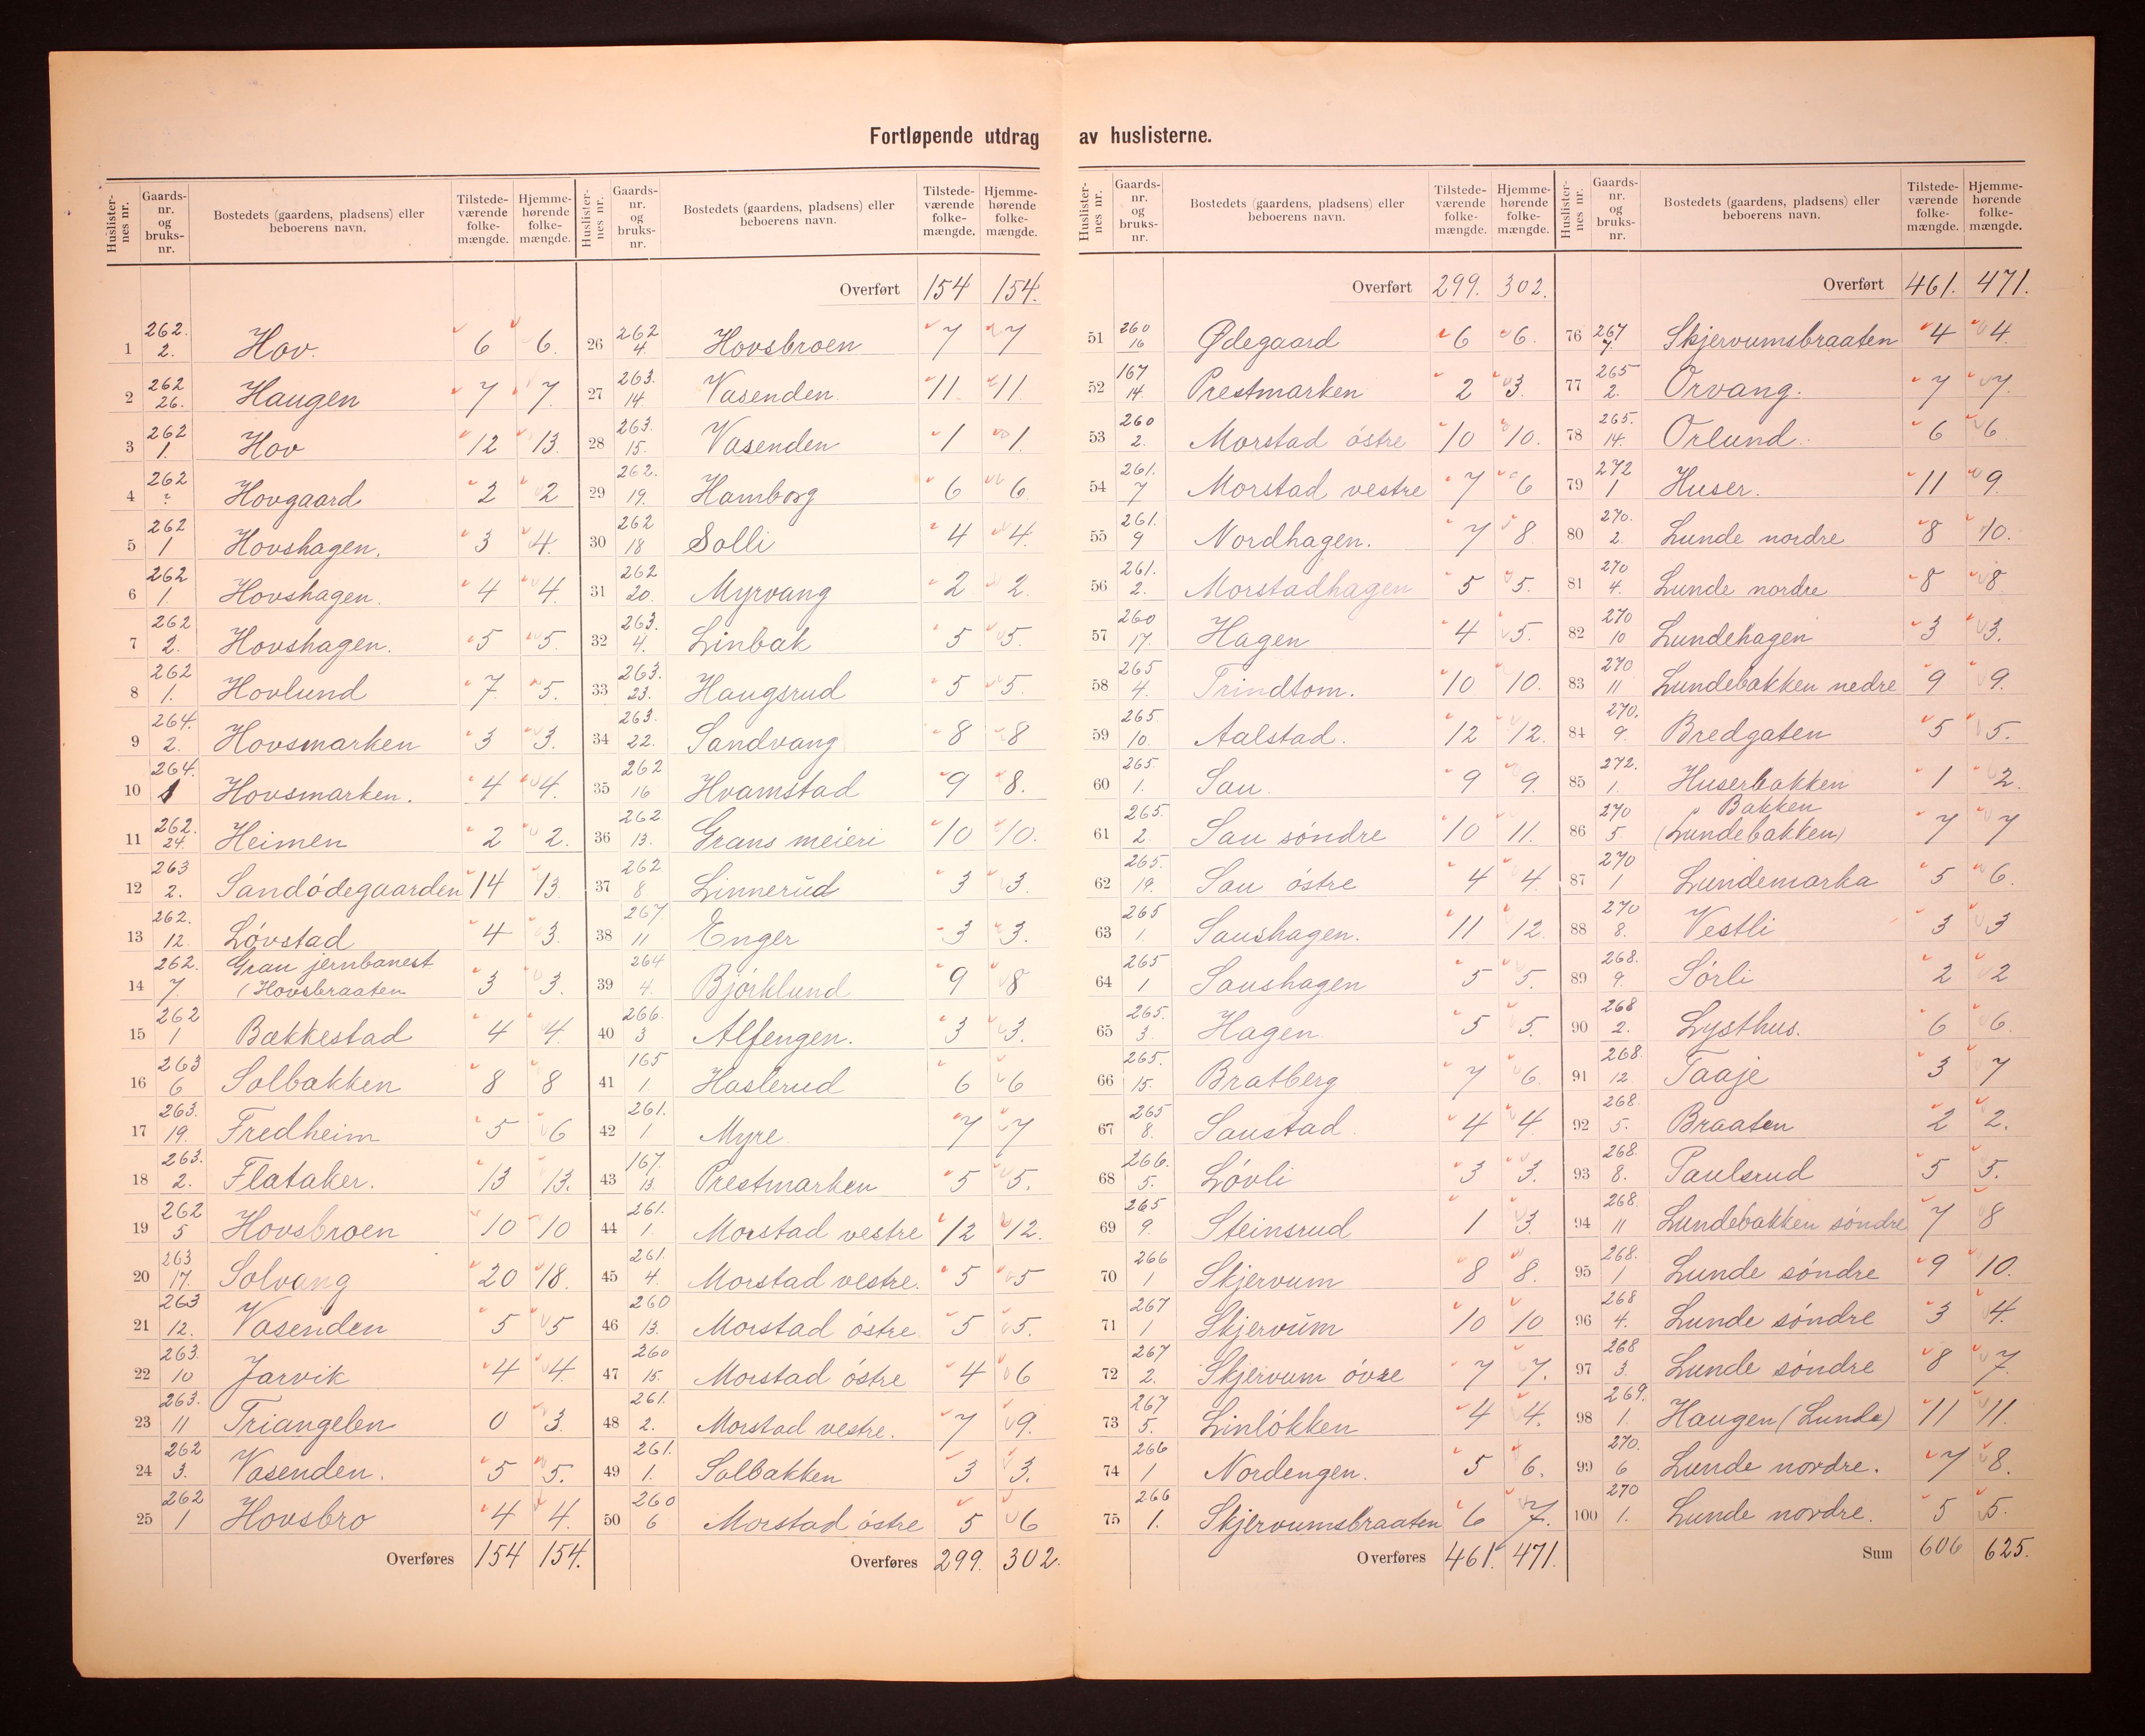 Fortløpende utdrag av huslisterne.
Huslisternes nr. | Gaardsnr. og bruksnr. | Bostedets (gaardens, pladsens) eller beboerens navn. | Tilstedeværende folkemængde. | Hjemmehørende folkemængde.
1 262. 2. Hov. 6 6.
2 262 26. Haugen 7 7.
3 262 1. Hov 12 13.
4 262 ? Hovgaard 2 2
5 262 1 Hovshagen. 3 4.
6 262 1. Hovshagen. 4 4.
7 262 2. Hovshagen. 5 5.
8 262 1. Hovlund 7. 5.
9 264. 2. Hovsmarken 3 3.
10 264. 1 Hovsmarken. 4 4.
11 262. 24. Heimen 2 2.
12 263 2. Sandödegaarden 14 13.
13 262. 12. Lövstad 4 3.
14 262. 7. Gran jernbanest. (Hovsbraaten 3 3.
15 262 1 Bækkestad 4 4.
16 263 6 Solbakken 8 8
17 263. 19. Fredheim 5 6
18 263. 2. Flataker. 13 13.
19 262 5 Hovsbroen 10 10
20 263 17. Solvang 20 18.
21 263 12. Vasenden 5 5
22 263. 10 Jarvik 4 4.
23 263. 11 Triangelen 0 3.
24 262 3. Vasenden. 5 5.
25 262 1 Hovsbro 4 4.
Overføres 154 154.
Huslisternes nr. | Gaardsnr. og bruksnr. | Bostedets (gaardens, pladsens) eller beboerens navn. | Tilstedeværende folkemængde. | Hjemmehørende folkemængde.
Overført 154 154.
26 262 4. Hovsbroen 7 7
27 263. 14 Vasenden 11 11
28 263. 15. Vasenden 1 1.
29 262. 19. Hamborg 6 6
30 262 18 Solli 4 4.
31 262 20. Myrvang 2 2.
32 263. 4. Linbak 5 5.
33 263. 23. Haugsrud 5 5.
34 263. 22. Sandvang 8 8
35 262 16 Hvamstad 9 8.
36 262. 13. Grans meieri 10 10.
37 262 8 Linnerud 3 3.
38 267. 11 Enger 3 3.
39 264 4. Björklund 9 8
40 266. 3 Alfengen. 3 3.
41 165 1. Haslerud 6 6
42 261. 1 Myre 7 7
43 167. 13. Prestmarken 5 5.
44 261. 1. Morstad vestre 12 12.
45 261. 4. Morstad vestre. 5 5
46 260 13. Morstad östre 5 5.
47 260 15. Morstad östre 4 6
48 261. 2. Morstad vestre. 7 9.
49 261. 1. Solbakken 3 3.
50 260 6 Morstad östre 5 6
Overføres 299. 302.
Huslisternes nr. | Gaardsnr. og bruksnr. | Bostedets (gaardens, pladsens) eller beboerens navn. | Tilstedeværende folkemængde. | Hjemmehørende folkemængde.
Overført 299. 302.
51 260 16 Ødegaard 6 6.
52 167 14. Prestmarken 2 3.
53 260 2. Morstad östre 10 10.
54 261. 7 Morstad vestre 7 6
55 261. 9 Nordhagen. 7 8
56 261. 2. Morstadhagen 5 5.
57 260 17. Hagen 4 5.
58 265 4. Trindtom. 10 10.
59 265. 10. Aalstad. 12 12.
60 265. 1. Sau. 9 9.
61 265. 2. Sau söndre 10 11.
62 265. 19. Sau östre 4 4.
63 265 1. Saushagen. 11 12.
64 265 1 Saushagen 5 5.
65 265. 3. Hagen 5 5.
66 265. 15. Bratberg 7 6.
67 265 8. Saustad 4 4
68 266. 5. Lövli 3 3.
69 265 9. Steinsrud 1 3.
70 266 1 Skjervum 8 8.
71 267 1 Skjervum 10 10
72 267 2. Skjervum övre 7 7.
73 267 5. Linlökken 4 4.
74 266 1 Nordengen. 5 6.
75 266 1. Skjervumsbraaten 6 7.
Overføres 461. 471.
Huslisternes nr. | Gaardsnr. og bruksnr. | Bostedets (gaardens, pladsens) eller beboerens navn. | Tilstedeværende folkemængde. | Hjemmehørende folkemængde.
Overført 461. 471.
76 267 7. Skjervumsbraaten 4 4.
77 265 2. Orvang. 7 7.
78 265. 14. Orlund. 6 6
79 272 1 Huser. 11 9.
80 270. 2. Lunde nordre 8 10.
81 270 4. Lunde nordre 8 8
82 270 10 Lundehagen 3 3.
83 270 11 Lundebakken nedre 9 9.
84 270. 9. Bredgaten 5 5.
85 272. 1. Huserbakken 1 2.
86 270 5 Bakken (Lundebakken) 7 7
87 270 1 Lundemarka 5 6.
88 270 8. Vestli 3 3
89 268. 9. Sörli 2 2
90 268 2. Lysthus. 6 6.
91 268. 12. Taaje 3 7
92 268. 5. Braaten 2 2.
93 268. 8. Paulsrud 5 5.
94 268 11 Lundebakken söndre 7 8
95 268. 1 Lunde söndre 9 10.
96 268 4. Lunde söndre 3 4.
97 268 3. Lunde söndre 8 7.
98 269. 1. Haugen (Lunde) 11 11.
99 270. 6 Lunde nordre. 7 8.
100 270 1. Lunde nordre. 5 5.
Sum 606 625.